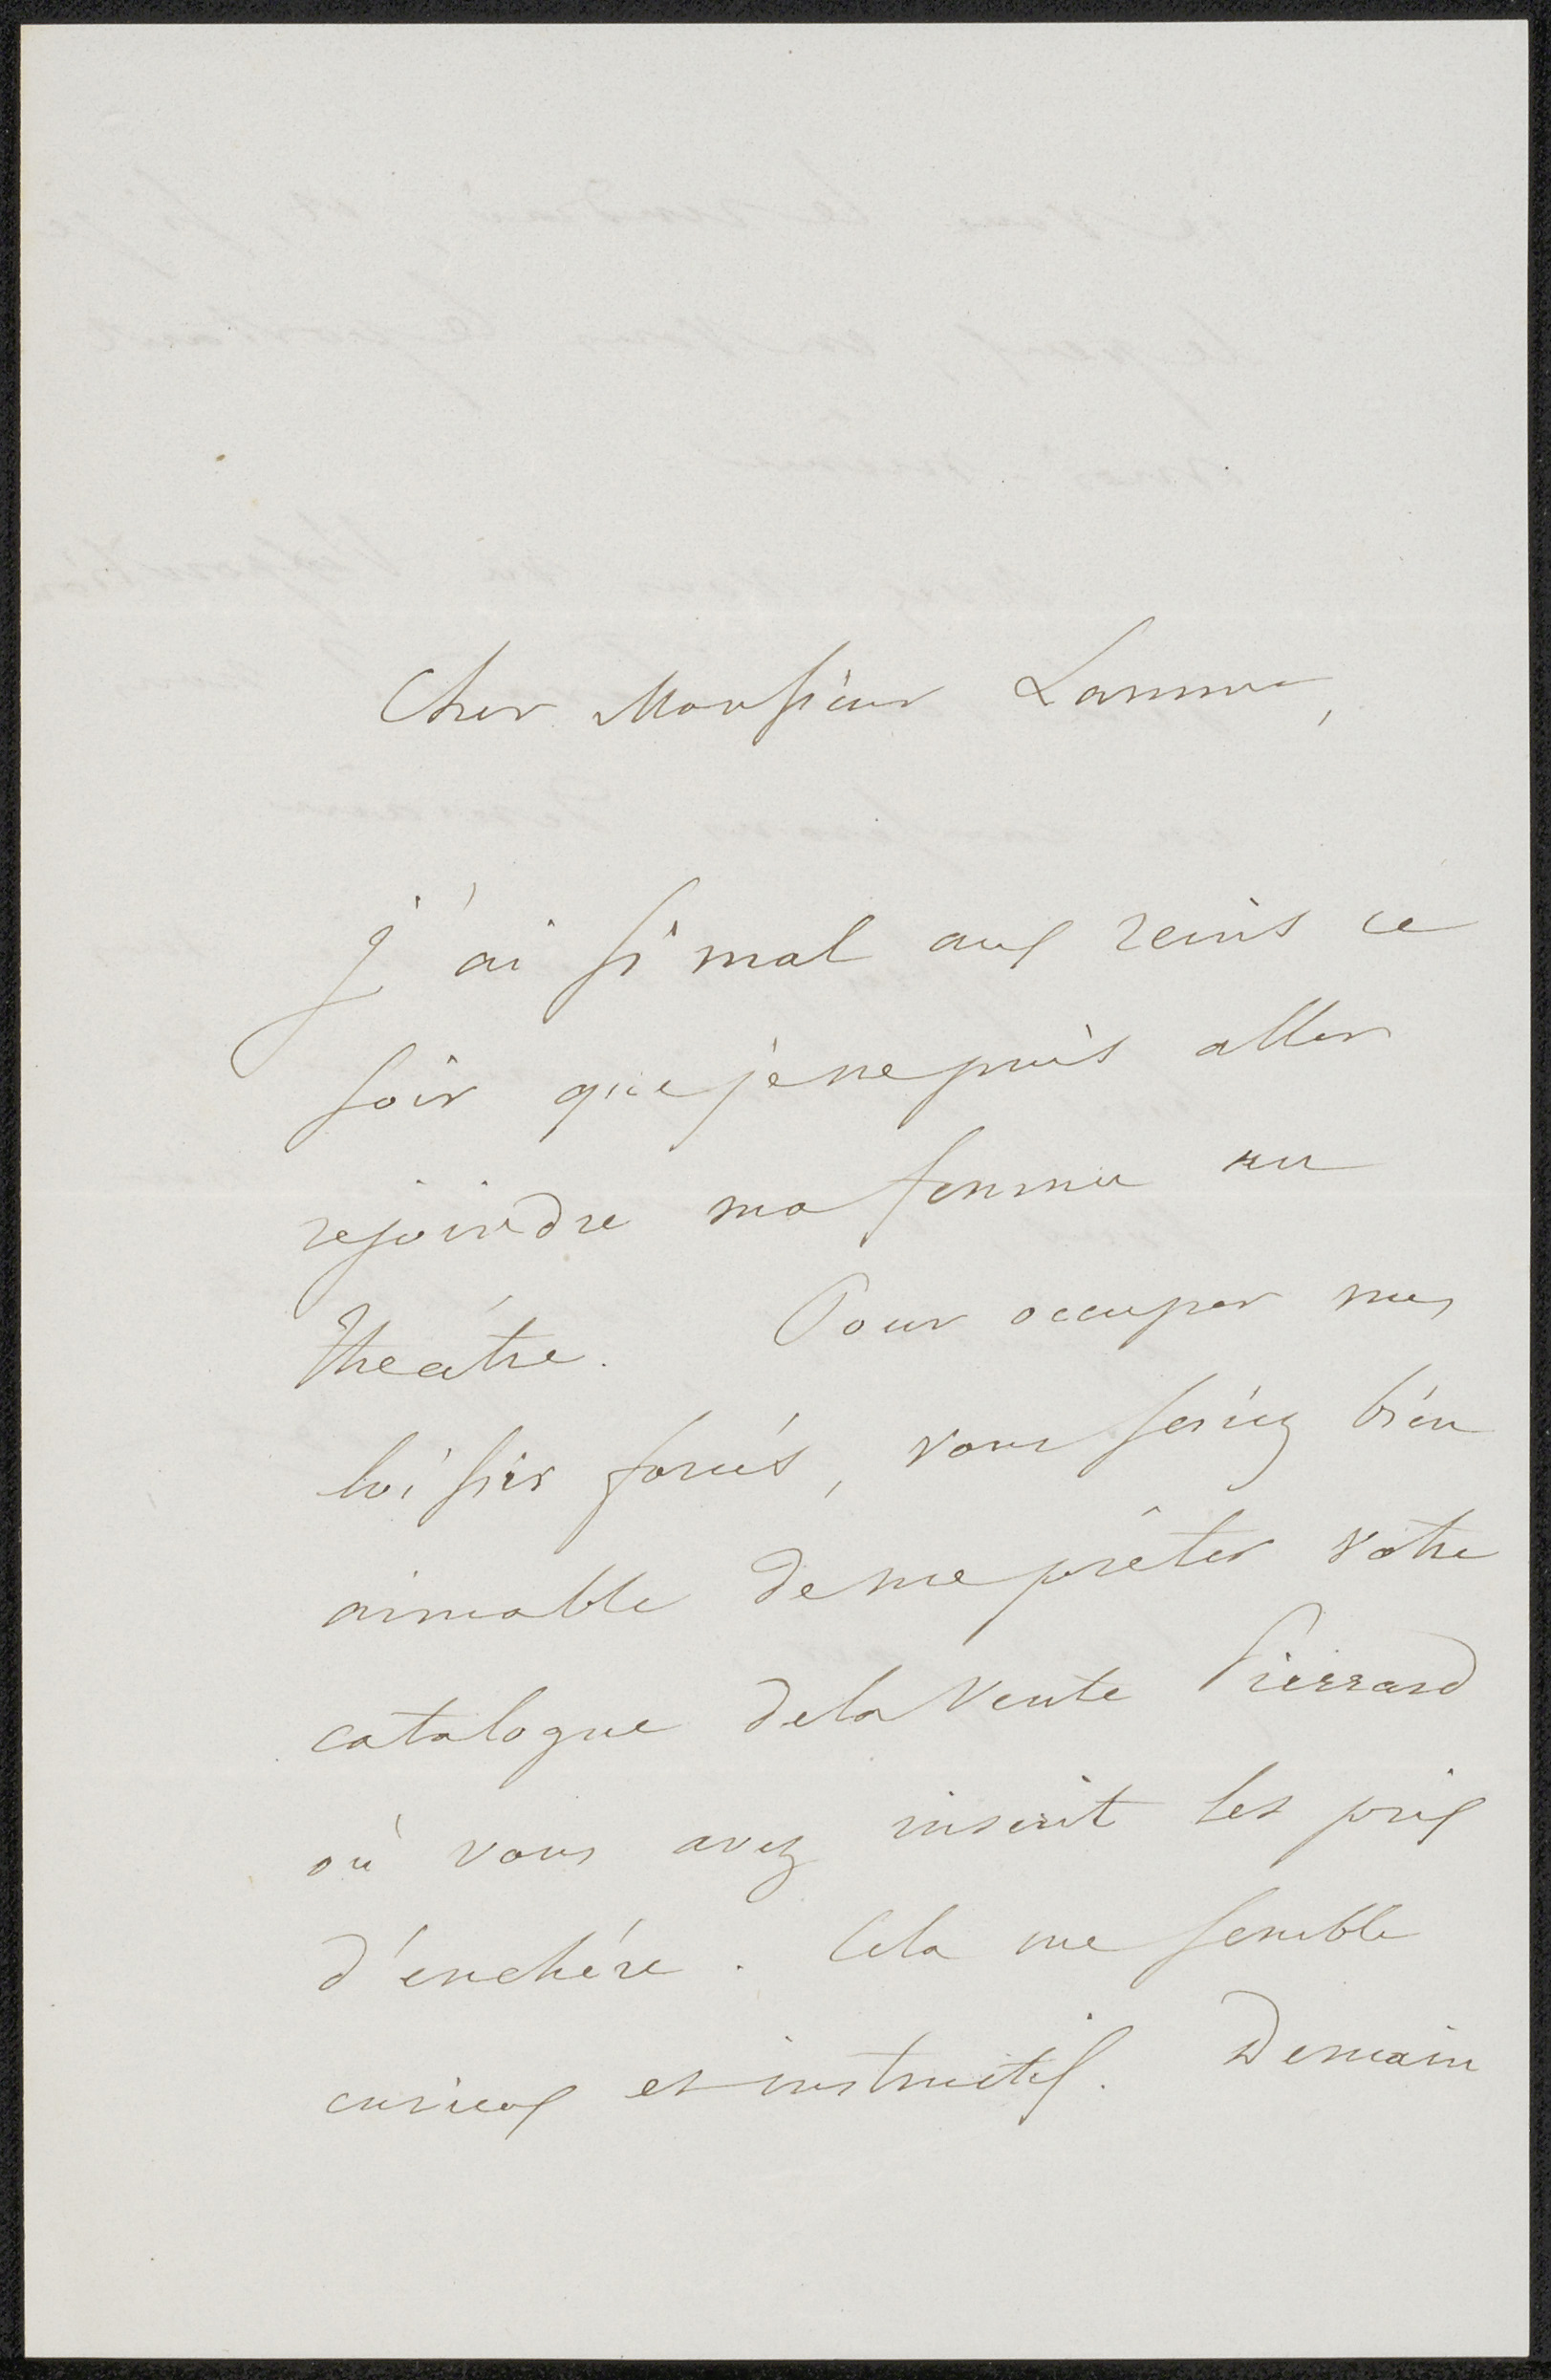 Cher Monsieur Lamme,
j'ai si mal aux reins ce
soir que je ne puis aller
rejoindre ma femme au
théatre. Pour occuper mes
loisirs forcés, vous seriez bien
aimable de me prêter votre
catalogue de la vente Pierrard
où vous avez inscrit les prix
d'enchére. Cela me semble
curieux et instructif. Demain